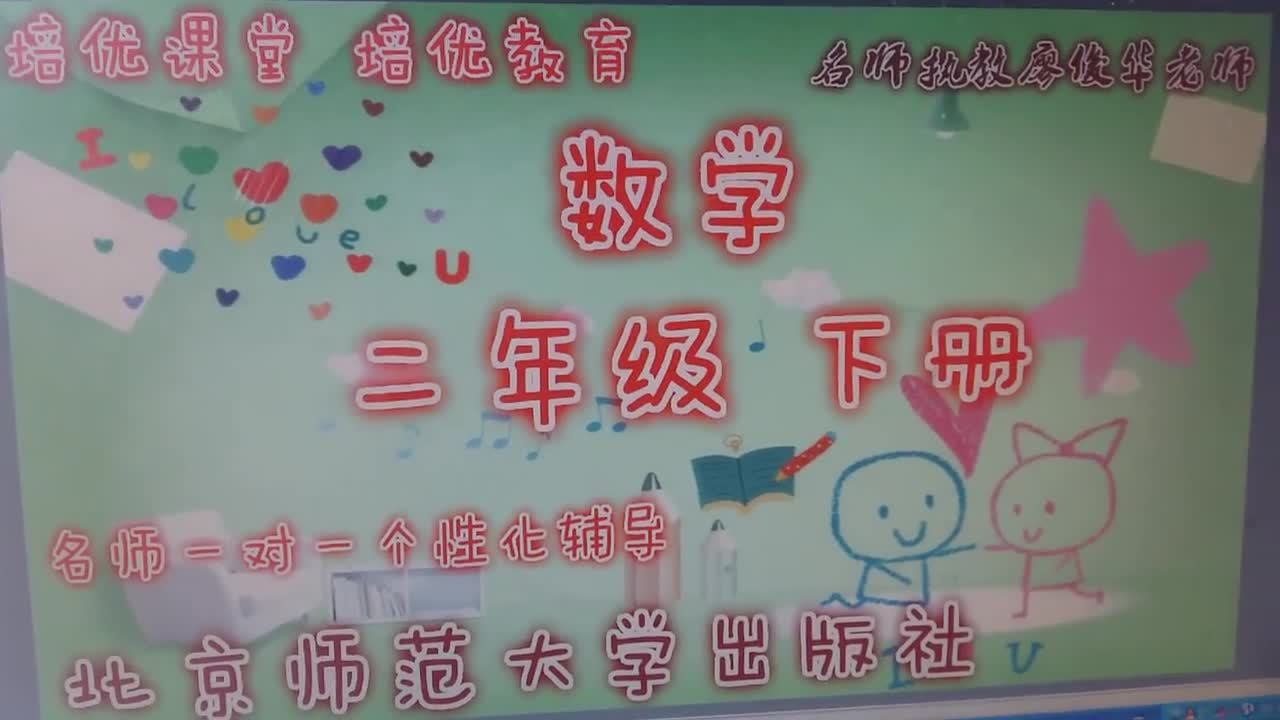 培优课堂 培优教育
名师执教廖俊华老师
I love U
数学
二年级 下册
名师一对一个性化辅导
北京师范大学出版社
I U